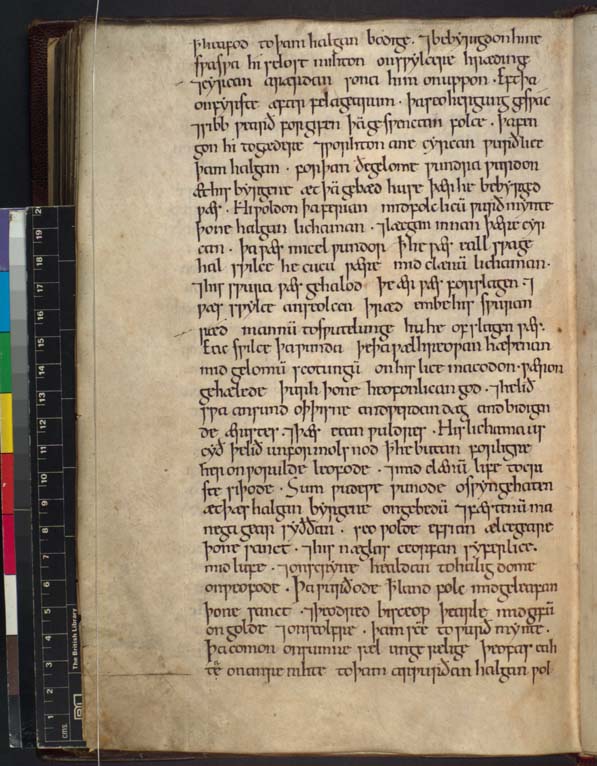 ꝥ heafod to þam halgan bodige. ⁊ bebyrigdon hine
swa swa hi selost mihton on swylcere hrædinge
⁊ cyrcan arærdan sona him onuppon. Eft þa
on fyrste æfter fela gearum. þa seo hergung geswac
⁊ sibb wearð forgifen þā geswenctan folce. þa fen
gon hi togædere ⁊ worhton ane cyrcan wurðlice
þam halgan. forþan ðe gelome wundra wurdon
æt his byrgene æt þā gebæd huse þær he bebyrged
wæs. Hi woldon þa ferian mid folclicū wurðmynte
þone halgan lichaman. ⁊ læcgan innan þære cyr
can. þa wæs micel wundor ꝥ he wæs eall swa ge
hal swilce he cucu wære mid clænū lichaman.
⁊ his swura wæs gehalod þe ær wæs forslagen. ⁊
wæs swylce an seolcen þræd embe his swuran
ræd mannū to swutelunge hu he ofslagen wæs.
Eac swilce þa wunda þe þa wælhreowan hæþenan
mid gelomū scotungū on his lice macodon. wæron
gehælede þurh þone heofonlican god. ⁊ he lið
swa ansund oþ þisne andwerdan dæg andbidigen
de æristes. ⁊ þæs ecan wuldres. His lichama us
cyð þe lið unformolsnod ꝥ he butan forligre
her on worulde leofode. ⁊ mid clænū life to cri
ste siþode. Sum wudewe wunode oswyn gehaten
æt þæs halgan byrgene on gebedū ⁊ fæstenū ma
nega gear syððan. seo wolde efsian ælce geare
þone sanct. ⁊ his næglas ceorfan syferlice.
mid lufe. ⁊ on scryne healdan to halig dome
on weofode. Þa wurðode ꝥ land folc mid geleafan
þone sanct. ⁊ þeodred bisceop þearle mid gifū
on golde ⁊ on seolfre. þam scē to wurðmynte.
Þa comon on sumne sæl unge sælige þeofas eah
ta on anre nihte to þam arwurðan halgan wol